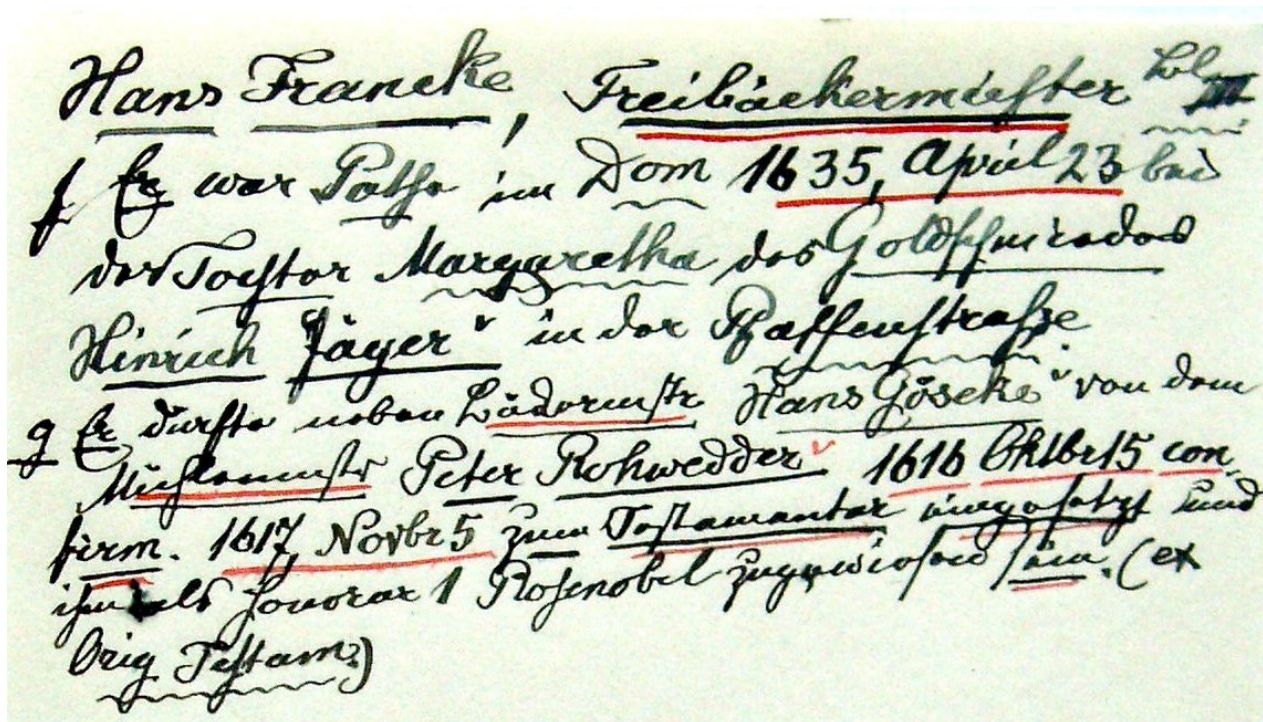 Hans Francke, Freibäckermeister
f Er war Pathe im Dom 1635, April 23 bei
der Tochter Margaretha des Goldschmiedes
Hinrich Jäger in der Pfaffenstraße
g Er dürfte neben Hans Göseke von dem
Mühlenmstr Peter Rohwedder 1616 Oktbr 15 con-
firm. 1617, Novbr 5 zum Testamentar eingesetzt und
ihm als Honorar 1 Rosenobel zugewiesen sein. (ex
Orig Testam.)